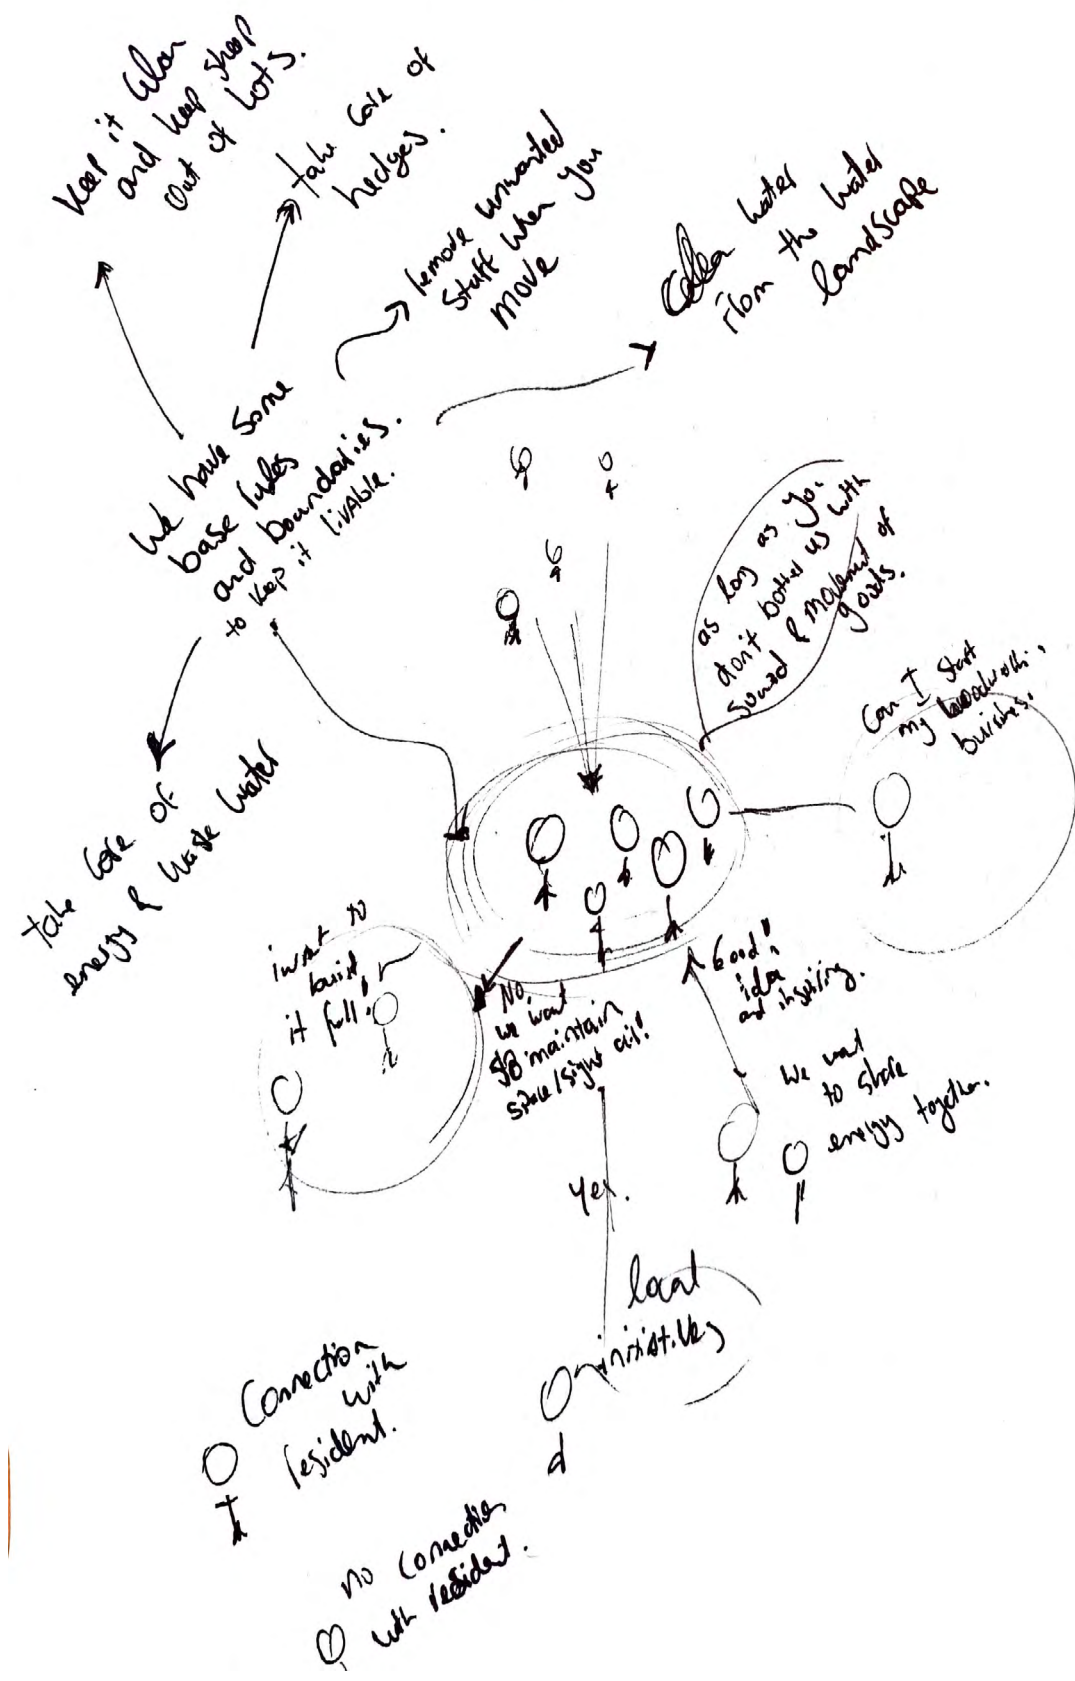 Keep it clean
and keep sheep
out of lots.
take care of
hedges.
remove unwanted
stuff when you
move
water
from the water
landscape
We have some
base rules
and boundaries.
to keep it livable.
as long as you
don't bother us with
sound & movement of
goods.
Can I start
my woodwork
take care of
energy & waste water
I want to
it full!
No,
we want
maintain
space/sight
Good!
idea
and inspiring.
We want
to share
energy together.
Yes.
local
Connection
with
resident.
no connection
with resident.